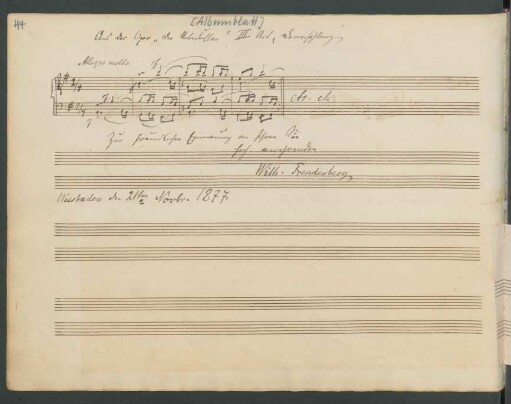 44
[Albumblatt]
Aus der Oper „die Nebenbuhler" III. Act,
Allegro molto
etc. etc.
Zur freundlichen Erinnerung an Ihren Sie
hoch verehrenden
Wilh. Freudenberg
Wiesbaden den 21ten Novbr. 1877.